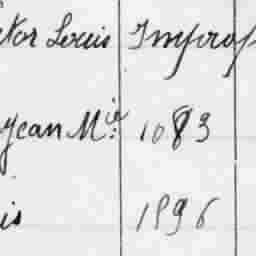 ctor Louis Improp
Jean M^ie 1083
is 1896